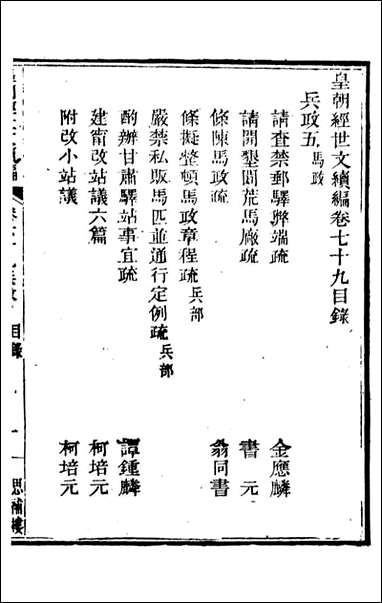 皇朝經世文續編卷七十九目錄
兵政五馬政
請查禁郵驛弊端疏 金應麟
請開墾閒荒馬廠疏 書元
條陳馬政疏 翁同書
條擬整頓馬政章程疏兵部
嚴禁私販馬匹並通行定例疏兵部
酌辦甘肅驛站事宜疏 譚鍾麟
建甯改站議六篇 柯培元
附改小站議 柯培元
目錄
一
思補樓